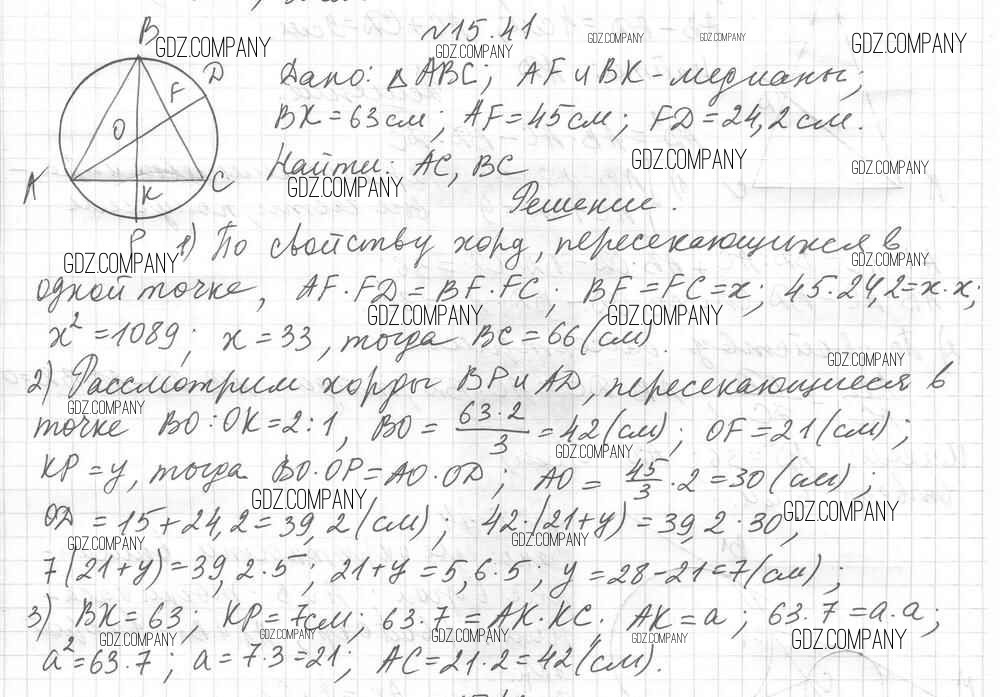 №15.41
GDZ.COMPANY GDZ.COMPANY GDZ.COMPANY GDZ.COMPANY GDZ.COMPANY
B
D
F
O
A
K
C
P
Дано: △ABC; AF и BK - медианы;
BK = 63 см; AF = 45 см; FD = 24,2 см.
Найти: AC, BC
GDZ.COMPANY GDZ.COMPANY GDZ.COMPANY
Решение.
1) По свойству хорд, пересекающихся в
GDZ.COMPANY GDZ.COMPANY
одной точке, AF·FD = BF·FC; BF = FC = x; 45·24,2 = x·x;
GDZ.COMPANY GDZ.COMPANY
x² = 1089; x = 33, тогда BC = 66 (см).
GDZ.COMPANY
2) Рассмотрим хорды BP и AD, пересекающиеся в
GDZ.COMPANY
точке BO:OK = 2:1, BO = 63·2/3 = 42 (см); OF = 21 (см);
GDZ.COMPANY
KP = y, тогда BO·OP = AO·OD; AO = 45/3·2 = 30 (см);
GDZ.COMPANY GDZ.COMPANY
OD = 15 + 24,2 = 39,2 (см); 42·(21+y) = 39,2·30,
GDZ.COMPANY GDZ.COMPANY
7(21+y) = 39,2·5; 21+y = 5,6·5; y = 28-21 = 7 (см);
3) BK = 63; KP = 7 см; 63·7 = AK·KC. AK = a; 63·7 = a·a;
GDZ.COMPANY GDZ.COMPANY GDZ.COMPANY GDZ.COMPANY GDZ.COMPANY
a² = 63·7; a = 7·3 = 21; AC = 21·2 = 42 (см).